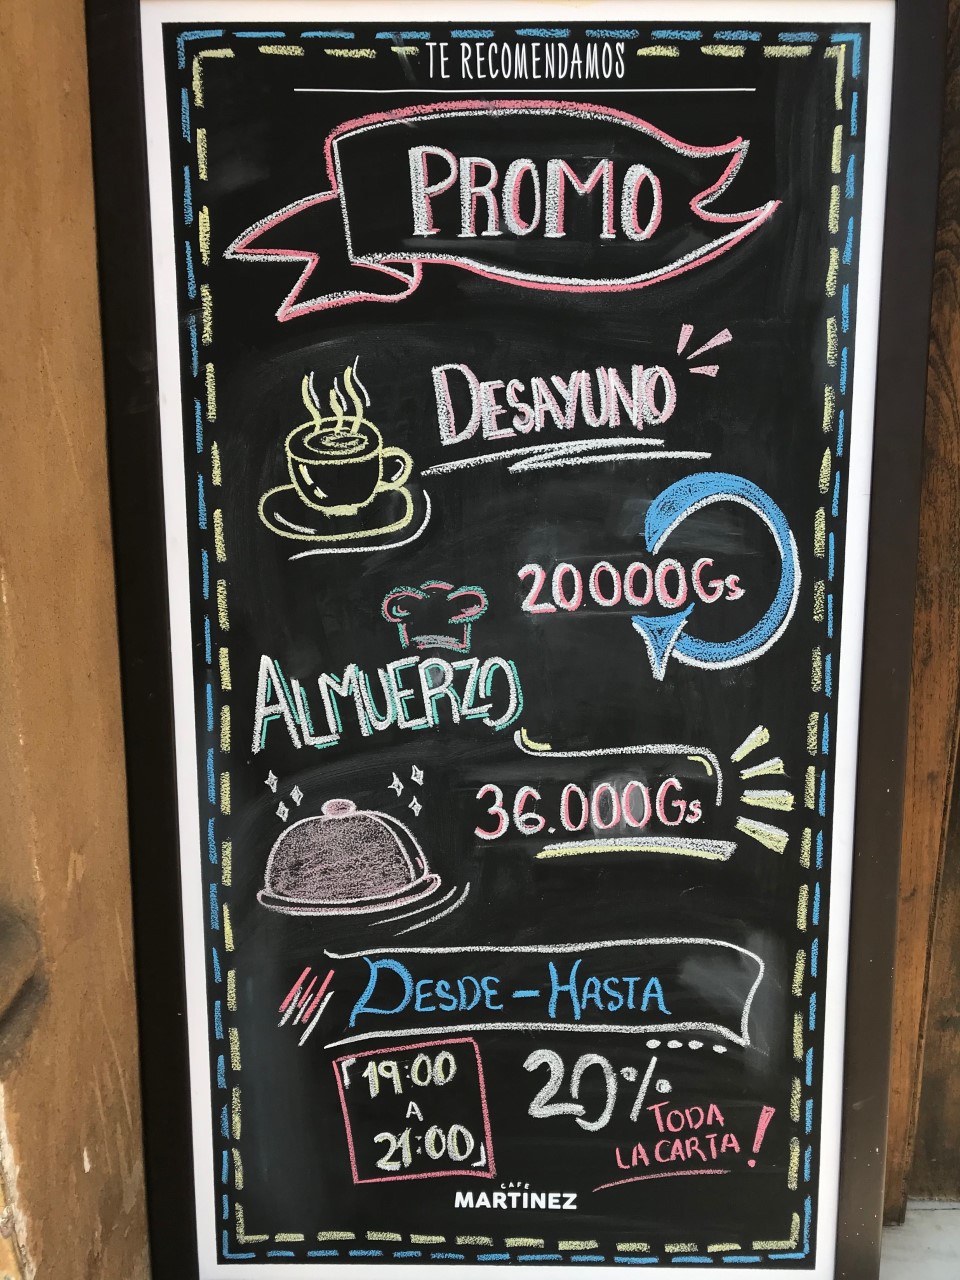 TE RECOMENDAMOS
PROMO
DESAYUNO
20000Gs
ALMUERZO
36.000Gs
DESDE - HASTA
19:00
A
21:00
20%
TODA
LA CARTA!
CAFE
MARTINEZ